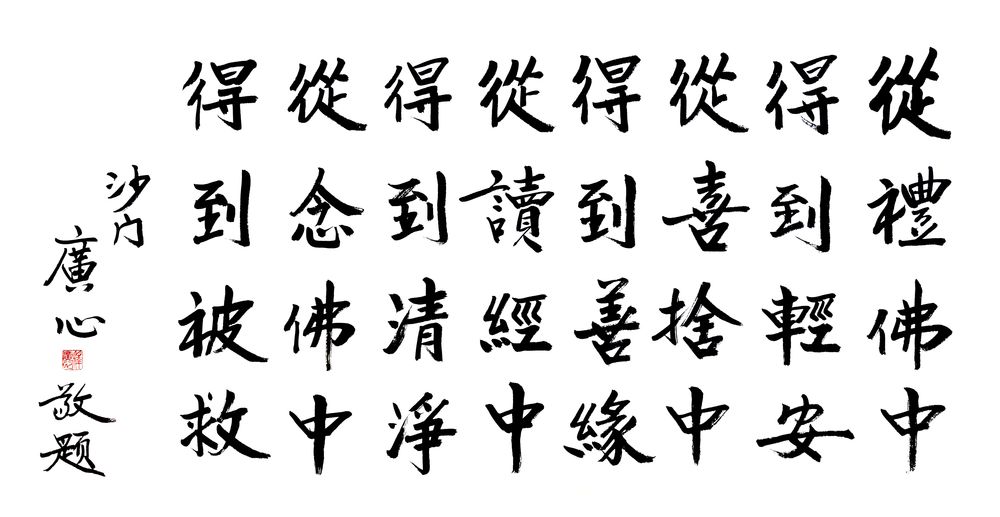 從禮佛中
得到輕安
從喜捨中
得到善緣
從讀經中
得到清淨
從念佛中
得到被救
沙门
廣心
敬题